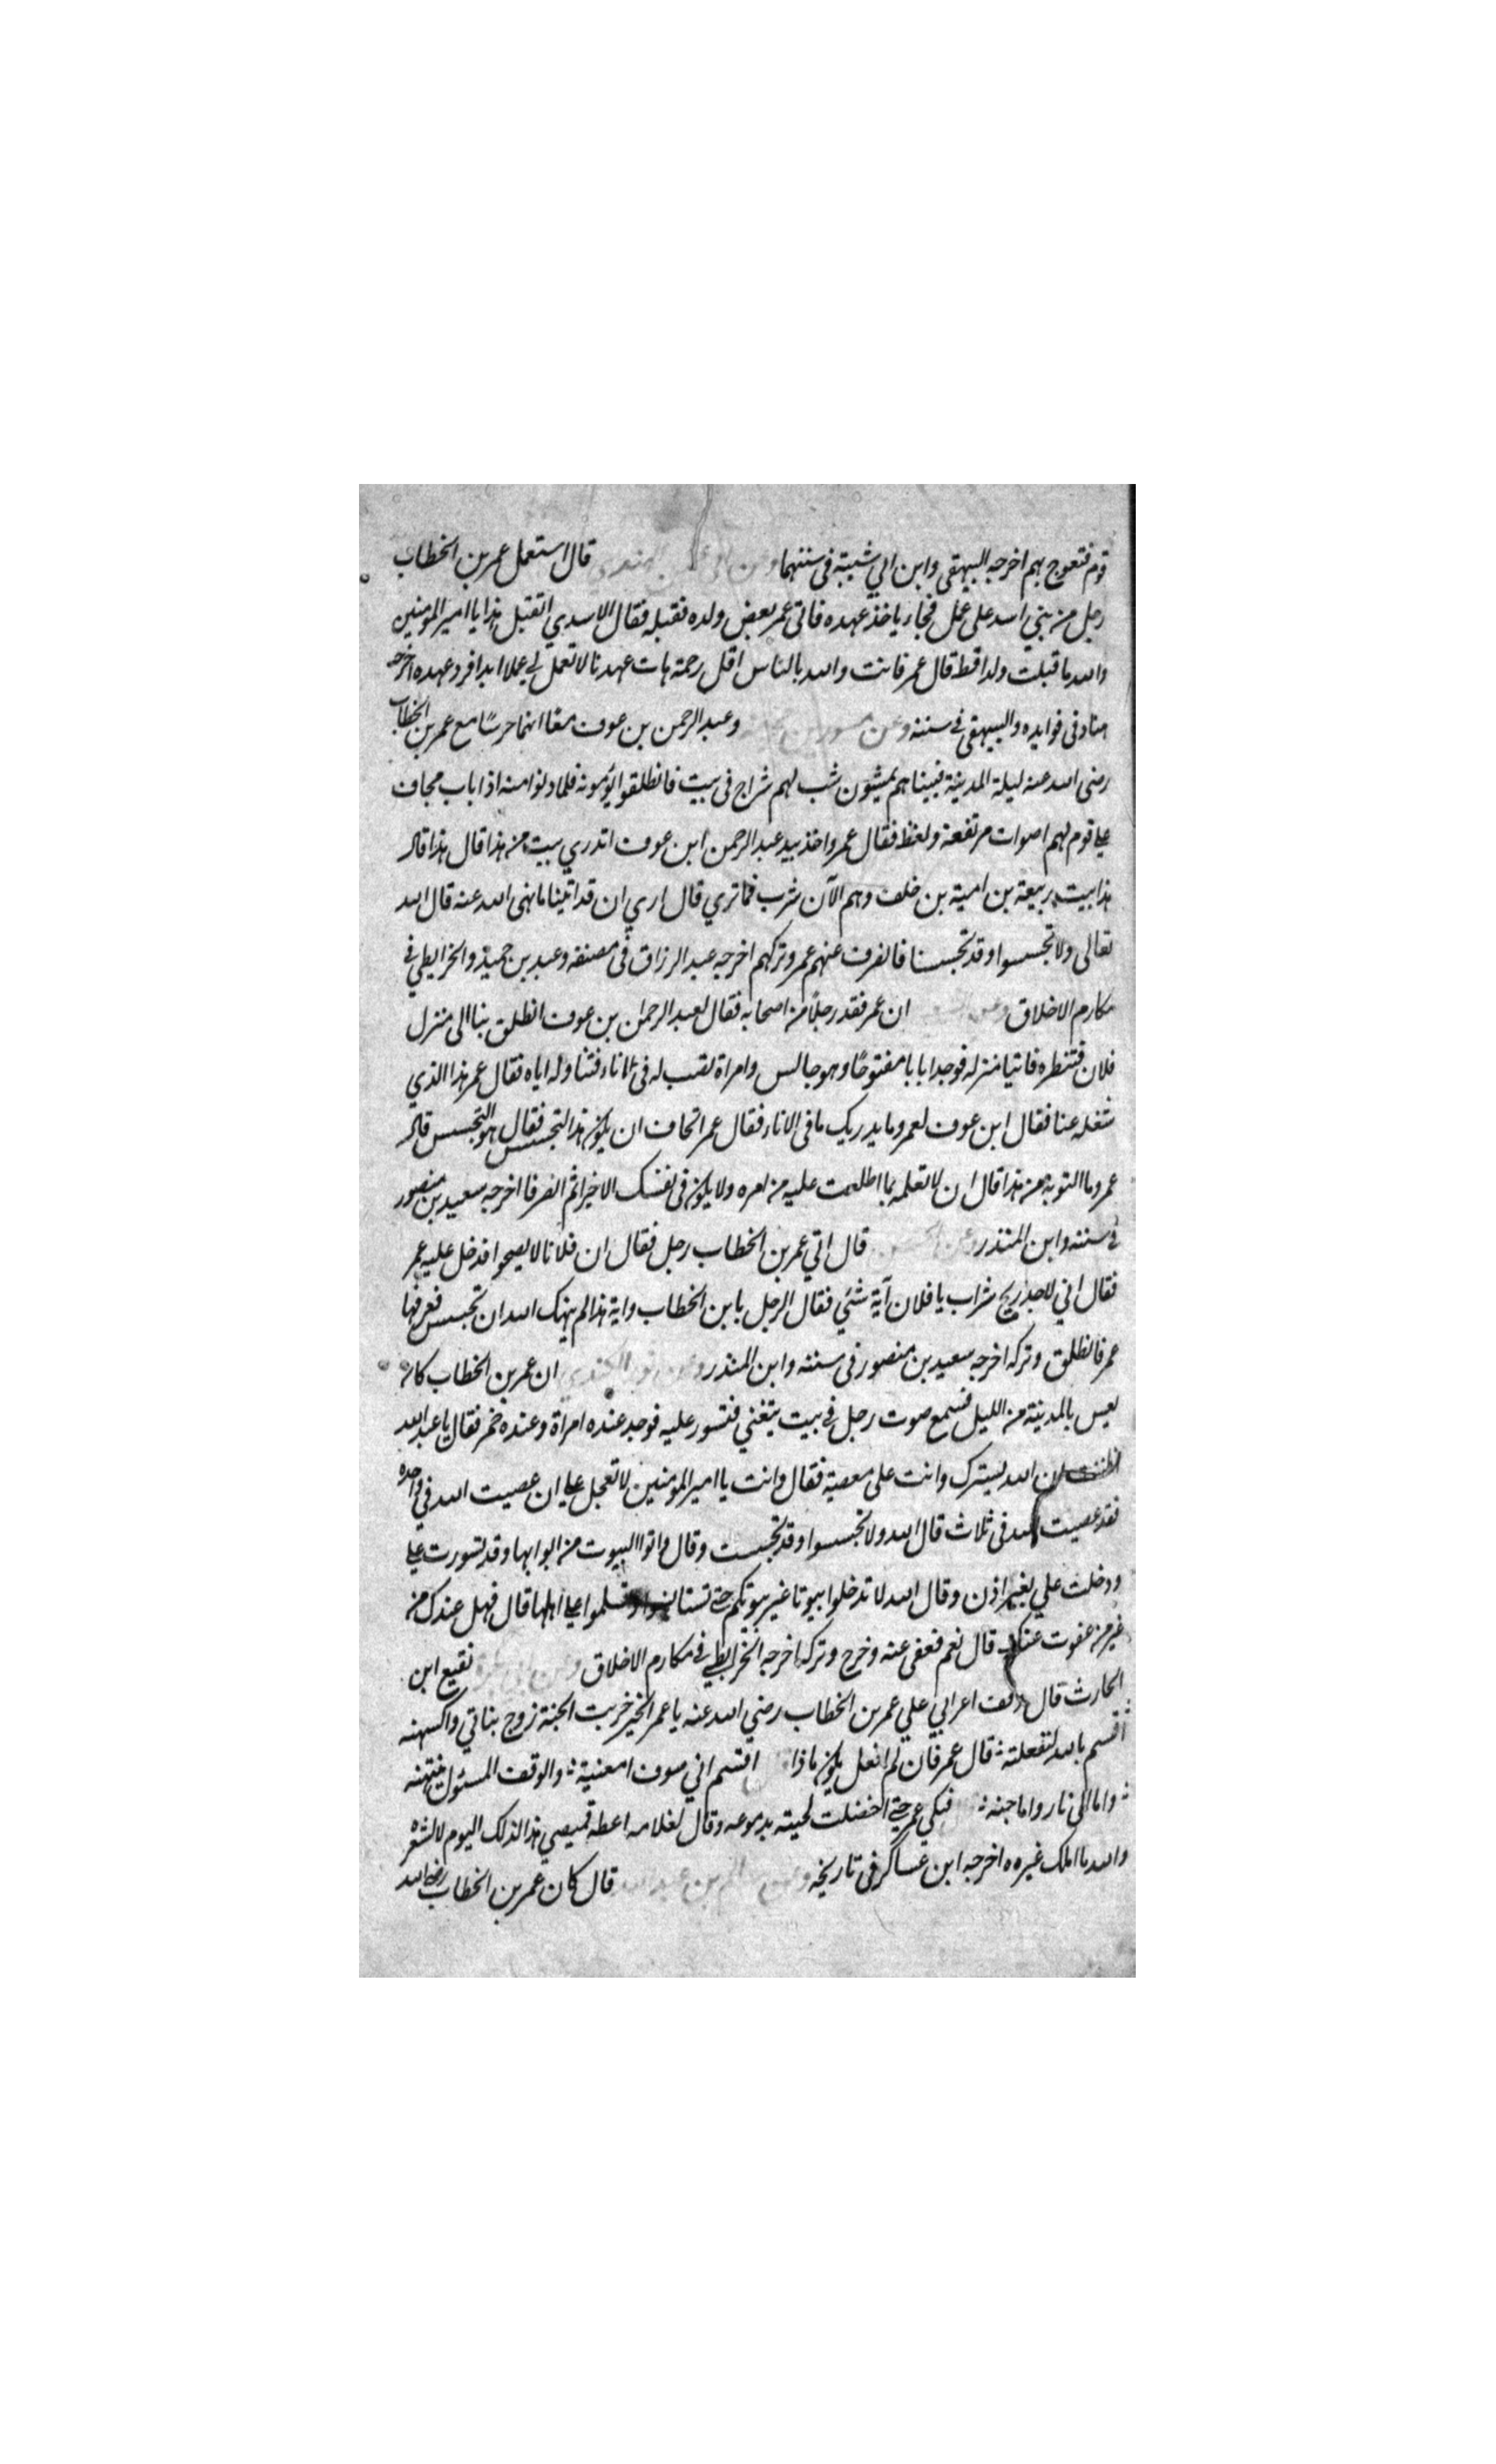 قوم فتعوج بهم اخرجه البيهقي وابن ابي شيبة في سننهما وعن ابي عثمن النهدي قال استعمل عمر بن الخطاب
رجل من بني اسد على عمل فجاء ياخذ عهده فاتى عمر بعض ولده فقبله فقال الاسدي اتقبل هذا يا امير المومنين
والله ما قبلت ولدا قط قال عمر فانت والله بالناس اقل رحمة هات عهدنا لا تعمل لي عملا ابدا فرد عهده اخرجه
هناد في فوايده والبيهقي في سننه وعن مسور بن مخرمة وعبد الرحمن بن عوف معا انهما حرسا مع عمر بن الخطاب
رضي الله عنه ليلة المدينة فبينا هم يمشون شب لهم سراج في بيت فانطلقوا يؤمونه فلما دنوا منه اذا باب مجاف
على قوم لهم اصوات مرتفعة ولغط فقال عمر واخذ بيد عبد الرحمن ابن عوف اتدري بيت من هذا قال هذا قال
هذا بيت ربيعة بن امية بن خلف وهم الآن شرب فما تري قال اري ان قد اتينا ما نهى الله عنه قال الله
تعالى ولا تجسسوا وقد تجسسنا فانصرف عنهم عمر وتركهم اخرجه عبد الرزاق في مصنفه وعبد بن حميد والخرايطي في
مكارم الاخلاق وعن الشعبي ان عمر فقد رجلا من اصحابه فقال لعبد الرحمان بن عوف انطلق بنا الى منزل
فلان فتنظره فاتيا منزله فوجدا بابا مفتوحا وهو جالس وامراة تصب له في الاناء فتناوله اياه فقال عمر هذا الذي
شغله عنا فقال ابن عوف لعمر وما يدريك ما في الاناء فقال عمر اتخاف ان يكون هذا التجسس فقال هو التجسس قال
عمر وما التوبة من هذا قال ان لا تعلمه بما اطلعت عليه من امره ولا يكون في نفسك الا خيرا ثم انصرفا اخرجه سعيد بن منصور
في سننه وابن المنذر وعن الحسن قال اتي عمر بن الخطاب رجل فقال ان فلانا لا يصحوا فدخل عليه عمر
فقال اني لاجد ريح شراب يا فلان آية شئي فقال الرجل يا بن الخطاب واية هذا لم ينهك الله ان تجسس فعرفها
عمر فانطلق وتركه اخرجه سعيد بن منصور في سننه وابن المنذر وعن ثور الكندي ان عمر بن الخطاب كان
يعس بالمدينة من الليل فسمع صوت رجل في بيت يتغني فتسور عليه فوجد عنده امراة وعنده خمر فقال يا عبد الله
اظننت ان الله يسترك وانت على معصية فقال وانت يا امير المومنين لا تعجل علي ان عصيت الله في واحده
فقد عصيت الله في ثلاث قال الله ولا تجسسوا وقد تجسست وقال واتوا البيوت من ابوابها وقد تسورت علي
ودخلت علي بغير اذن وقال الله لا تدخلوا بيوتا غير بيوتكم حتى تستانسوا وتسلموا على اهلها قال فهل عندك من
غير من عفوت عنك قال نعم فعفى عنه وخرج وتركه اخرجه الخرايطي في مكارم الاخلاق نقيع ابن
الحارث قال وقف اعرابي علي عمر بن الخطاب رضي الله عنه يا عمر الخير خربت الجنة زوج بناتي واكسهنه
اقسم بالله لتفعلنه قال عمر فان لم افعل يكون ماذا اقسم اني سوف امعنية والوقف المسئول يبتهنه
واما الى نار واما جنه فبكى عمر حتى اخضلت لحيته بدموعه وقال لغلامه اعطه قميصي هذا لذلك اليوم لا لشعره
والله ما املك غيره اخرجه ابن عساكر في تاريخه وعن سالم بن عبد الله قال كان عمر بن الخطاب رضي الله